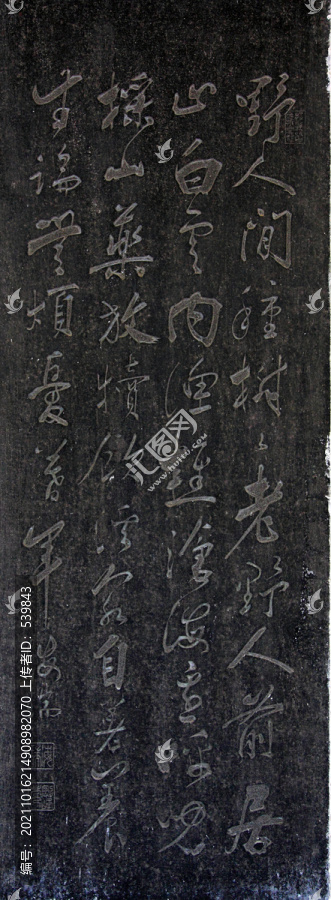 野人閒種樹〻老野人前居
止白雲内漁樵滄海邊呼兒
採山藥放犢飲溪泉自著養
生論無煩憂暮年
汇图网
www.huitu.com
编号：20211016214908982070 上传者ID：539843